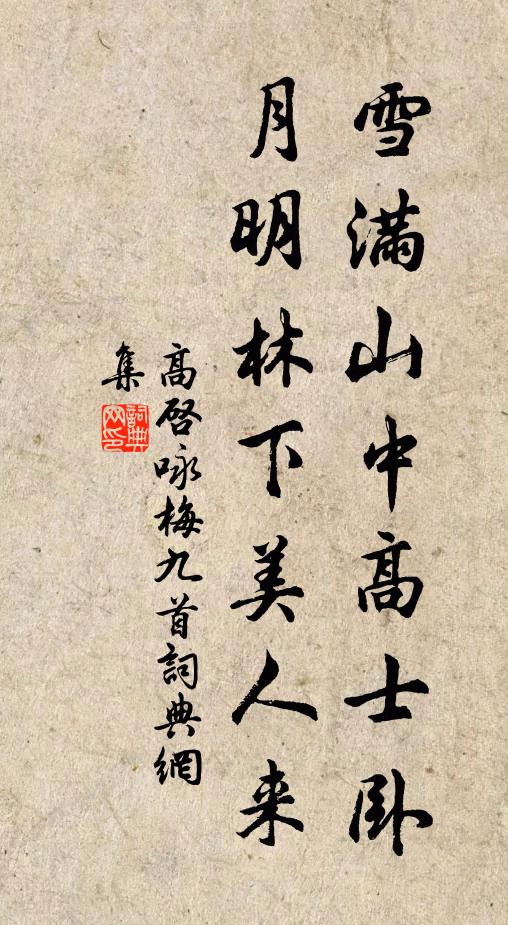 雪满山中高士卧
月明林下美人来
高啓咏梅九首詞典網
集
詞典
网印